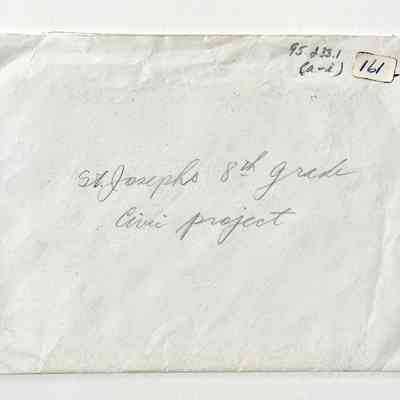 95 233.1
(a-d) 161
St. Josephs 8th grade
Civic project